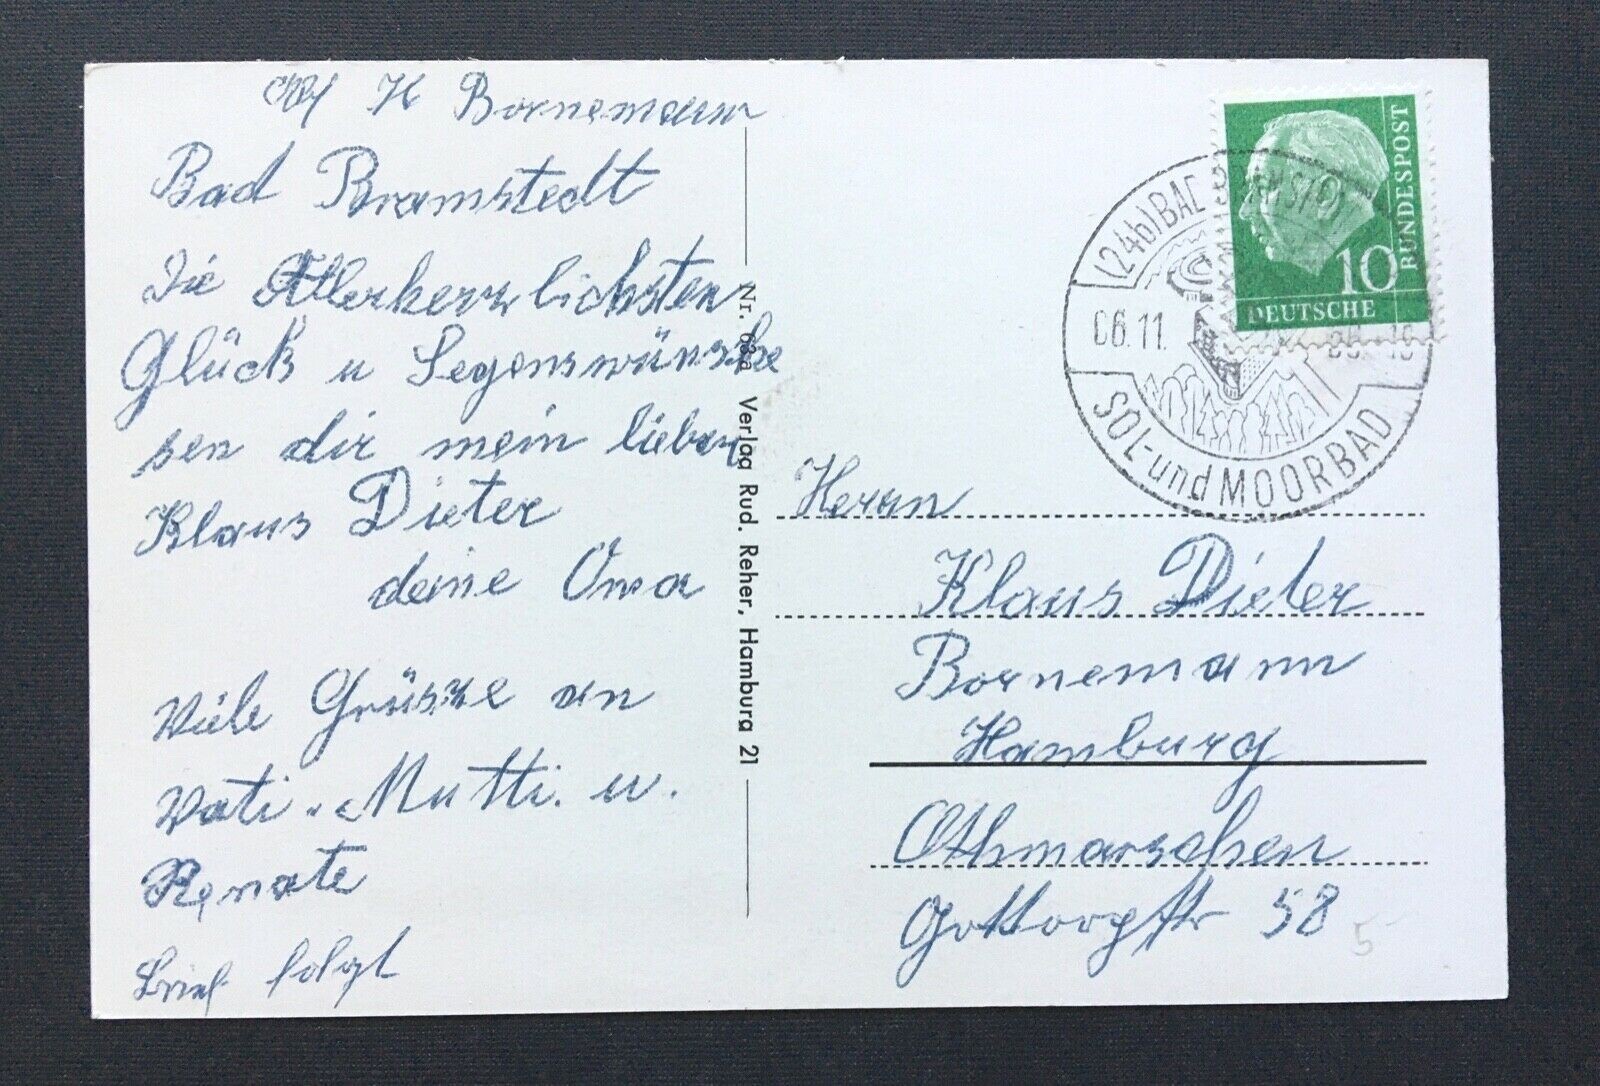 H Bornemann
Bad Bramstedt
Die Allerherzlichsten
Glück u Segenswünsche
sen dir mein lieber
Klaus Dieter
deine Oma
Viele Grüsse an
Vati. Mutti. u.
Renate
Brief folgt
Nr. 63a Verlag Rud. Reher, Hamburg 21
10
DEUTSCHE
BUNDESPOST
(24b) BAD
06.11.
SOL- und MOORBAD
Herrn
Klaus Dieter
Bornemann
Hamburg
Othmarschen
Gottorpstr 58
5